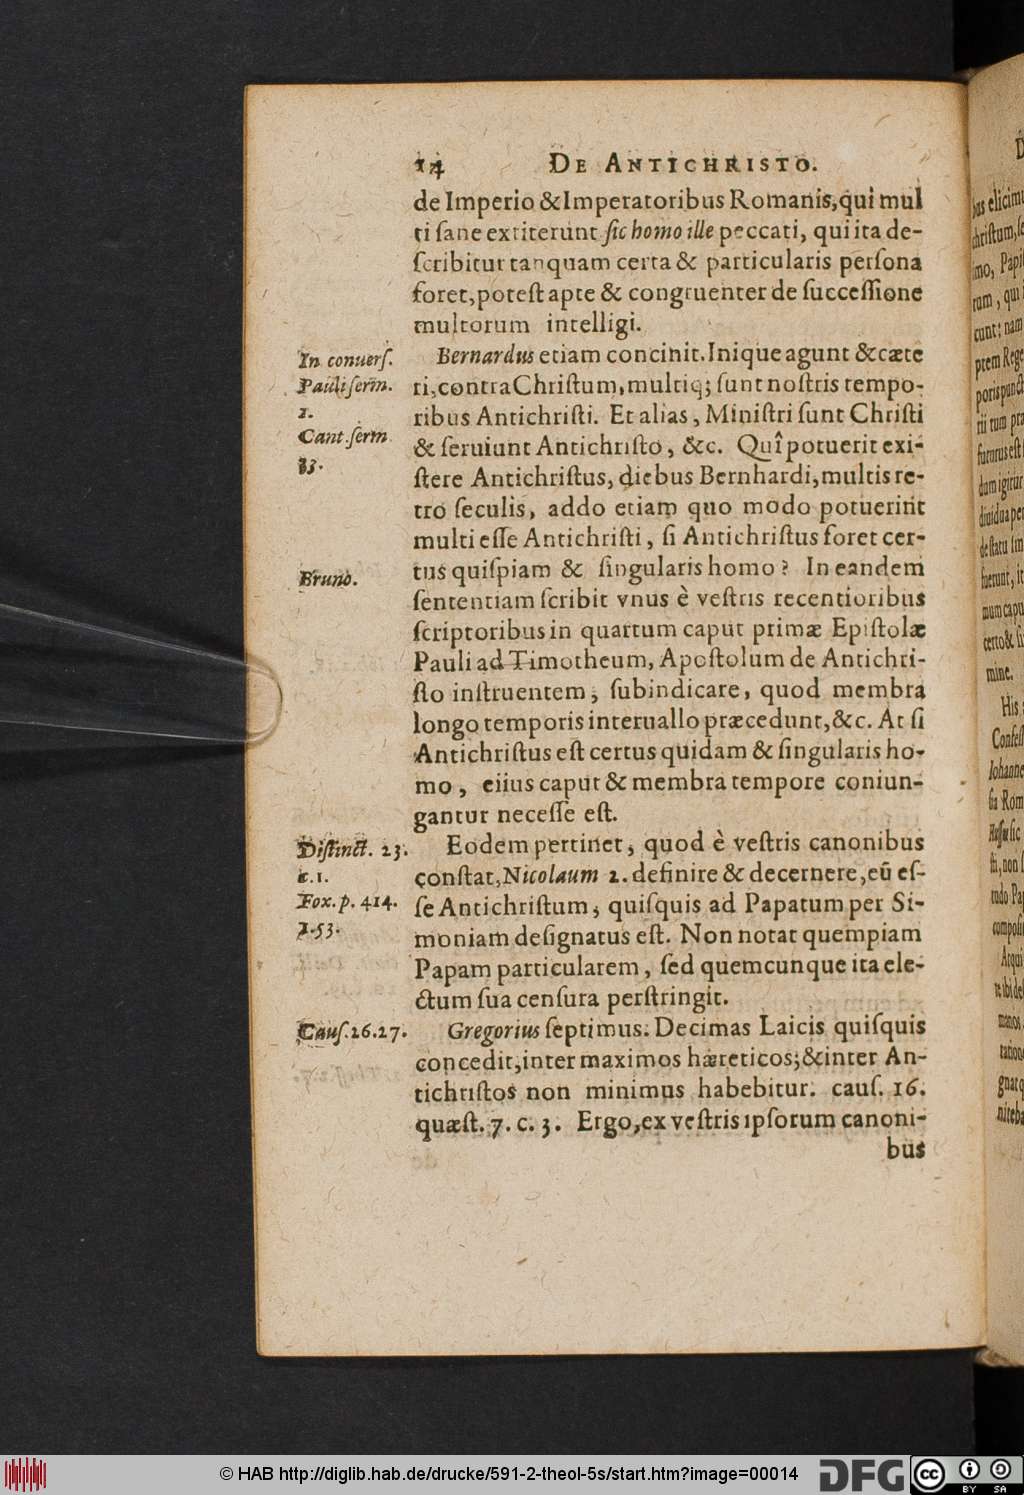 14 DE ANTICHRISTO.
de Imperio & Imperatoribus Romanis, qui mul
ti ſane extiterunt ſic homo ille peccati, qui ita de-
ſcribitur tanquam certa & particularis perſona
foret, poteſt apte & congruenter de ſucceſſione
multorum intelligi.
In conuerſ.
Pauli ſerm.
1.
Cant. ſerm
33.
Bernardus etiam concinit. Inique agunt & cæte
ri, contra Chriſtum, multiq; ſunt noſtris tempo-
ribus Antichriſti. Et alias, Miniſtri ſunt Chriſti
& ſeruiunt Antichriſto, &c. Quî potuerit exi-
ſtere Antichriſtus, diebus Bernhardi, multis re-
tro ſeculis, addo etiam quo modo potuerint
multi eſſe Antichriſti, ſi Antichriſtus foret cer-
Bruno.
tus quiſpiam & ſingularis homo? In eandem
ſententiam ſcribit vnus è veſtris recentioribus
ſcriptoribus in quartum caput primæ Epiſtolæ
Pauli ad Timotheum, Apoſtolum de Antichri-
ſto inſtruentem, ſubindicare, quod membra
longo temporis interuallo præcedunt, &c. At ſi
Antichriſtus eſt certus quidam & ſingularis ho-
mo, eiius caput & membra tempore coniun-
gantur neceſſe eſt.
Diſtinct. 23.
c. 1.
Fox. p. 414.
1.53.
Eodem pertinet, quod è veſtris canonibus
conſtat, Nicolaum 2. definire & decernere, eū eſ-
ſe Antichriſtum, quiſquis ad Papatum per Si-
moniam deſignatus eſt. Non notat quempiam
Papam particularem, ſed quemcunque ita ele-
ctum ſua cenſura perſtringit.
Cauſ. 26. 27.
Gregorius ſeptimus. Decimas Laicis quiſquis
concedit, inter maximos hæreticos; & inter An-
tichriſtos non minimus habebitur. cauſ. 16.
quæſt. 7. c. 3. Ergo, ex veſtris ipſorum canoni-
bus
© HAB http://diglib.hab.de/drucke/591-2-theol-5s/start.htm?image=00014
DFG
cc BY SA